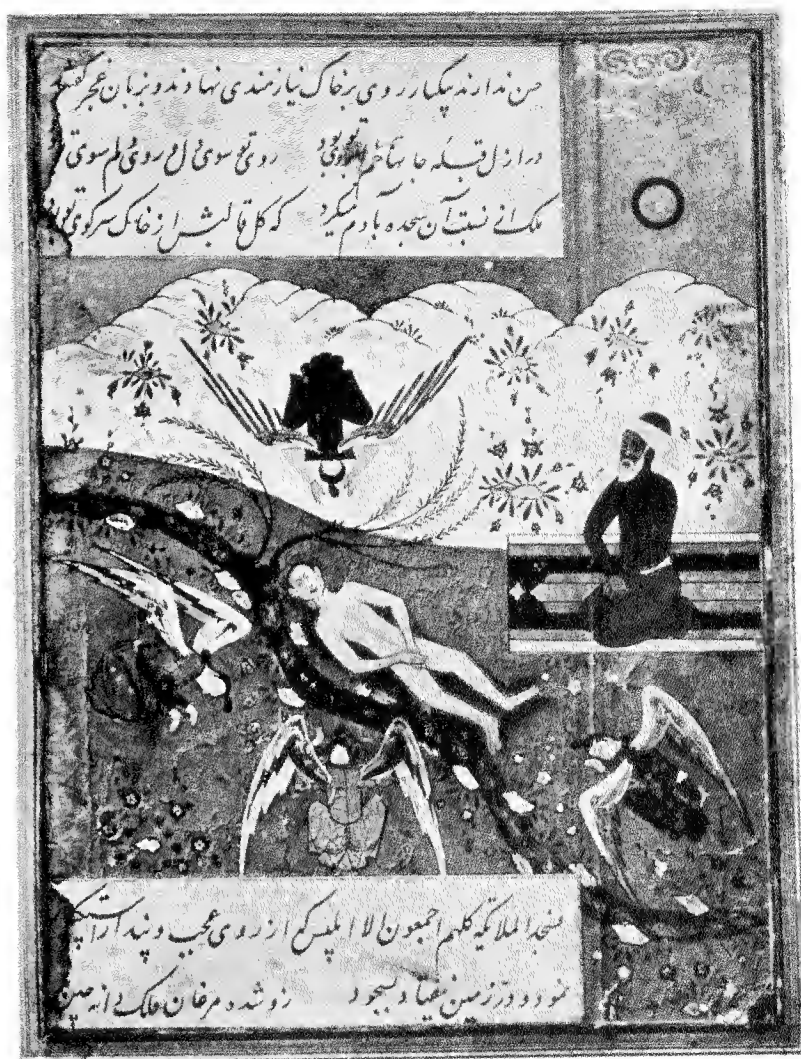 من ندارند یکبار روی بر خاک نیازمندی نهادند و بزبان عجز گفتند
در ازل قبله جانها خم ابروی تو بود روی تو سوی دل و روی دلم سوی تو
ملک از نسبت آن سجده بآدم میکرد که گل قالبش از خاک سر کوی تو بود
فسجد الملائکة کلهم اجمعون الا ابلیس که از روی عجب و پندار
در زمین نیفتاد بسجود زو شده مرغان فلک دانه چین